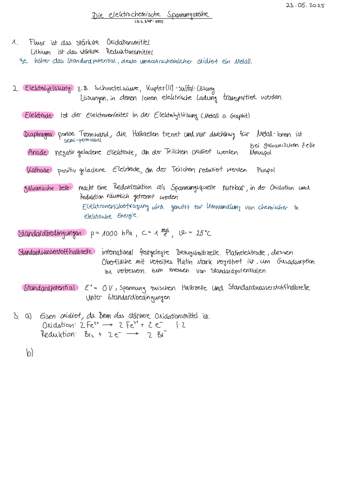 22.05.2025
Die elektrochemische Spannungsreihe
1. Fluor ist das stärkste Oxidationsmittel
Lithium ist das stärkste Reduktionsmittel
Je höher das Standardpotential, desto unwahrscheinlicher oxidiert ein Metall.
2. Elektrolytlösung z.B. Schwefelsäure, Kupfer(II)-sulfat-Lösung
Lösungen, in denen Ionen elektrische Ladung transportiert werden
Elektrode Ist der Elektronenleiter in der Elektrolytlösung (Metall o. Graphit)
Diaphragma poröse Trennwand, die Halbzellen trennt und nur durchlässig für Metall-Ionen ist
semi-permeabel
bei galvanischen Zelle
Anode negativ geladene Elektrode, an der Teilchen oxidiert werden Minuspol
Kathode positiv geladene Elektrode, an der Teilchen reduziert werden Pluspol
galvanische Zelle macht eine Redoxreaktion als Spannungsquelle nutzbar, in der Oxidation und
Reduktion räumlich getrennt werden
Elektronenübertragung wird genutzt zur Umwandlung von chemischer in
elektrische Energie.
Standardbedingungen p = 1000 hPa, c = 1 mol/L, ϑ = 25°C
Standardwasserstoffhalbzelle international festgelegte Bezugshalbzelle, Platinelektrode, deren
Oberfläche mit verteiltes Platin stark vergrößert ist, um Gasadsorption
zu verbessern zum messen von Standardpotentialen
Standardpotential E° = 0V, Spannung zwischen Halbzelle und Standardwasserstoffhalbzelle
unter Standardbedingungen
3. a) Eisen oxidiert, da Brom das stärkere Oxidationsmittel ist.
Oxidation: 2 Fe²⁺ → 2 Fe³⁺ + 2 e⁻ |·2
Reduktion: Br₂ + 2 e⁻ → 2 Br⁻
b)